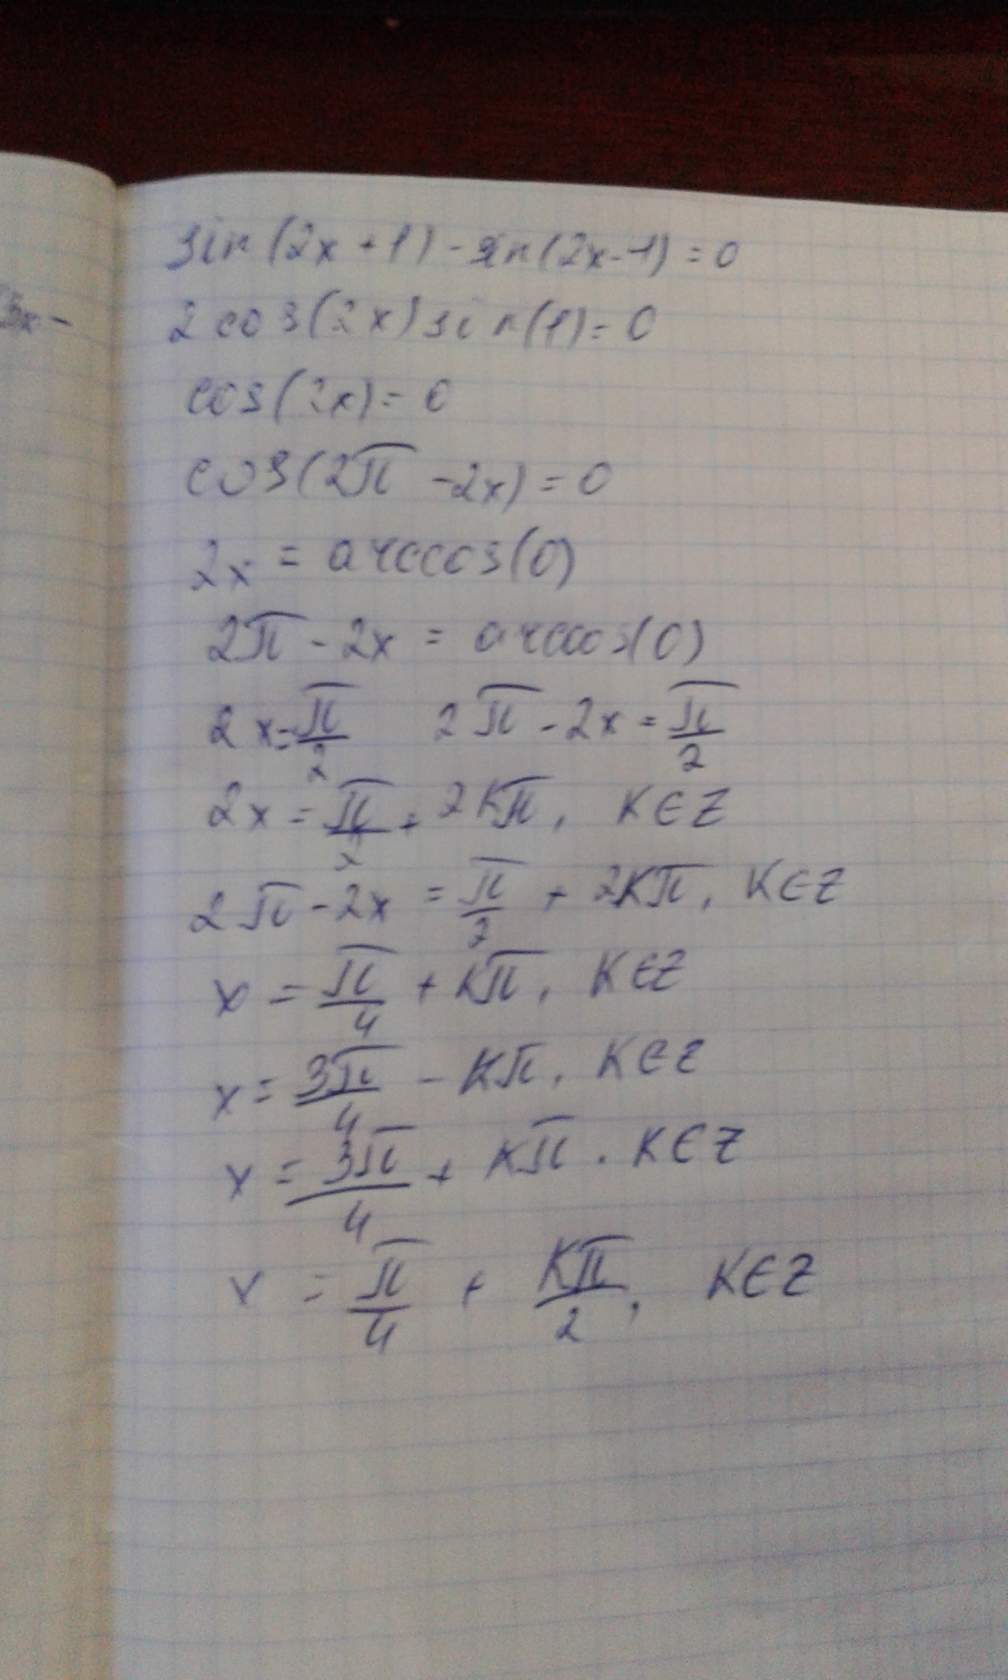 sin(2x+1)-sin(2x-1)=0
2cos(2x)sin(1)=0
cos(2x)=0
cos(2π-2x)=0
2x=arccos(0)
2π-2x=arccos(0)
2x=π/2 2π-2x=π/2
2x=π/2+2kπ, k∈Z
2π-2x=π/2+2kπ, k∈Z
x=π/4+kπ, k∈Z
x=3π/4-kπ, k∈Z
x=3π/4+kπ. k∈Z
x=π/4+kπ/2, k∈Z